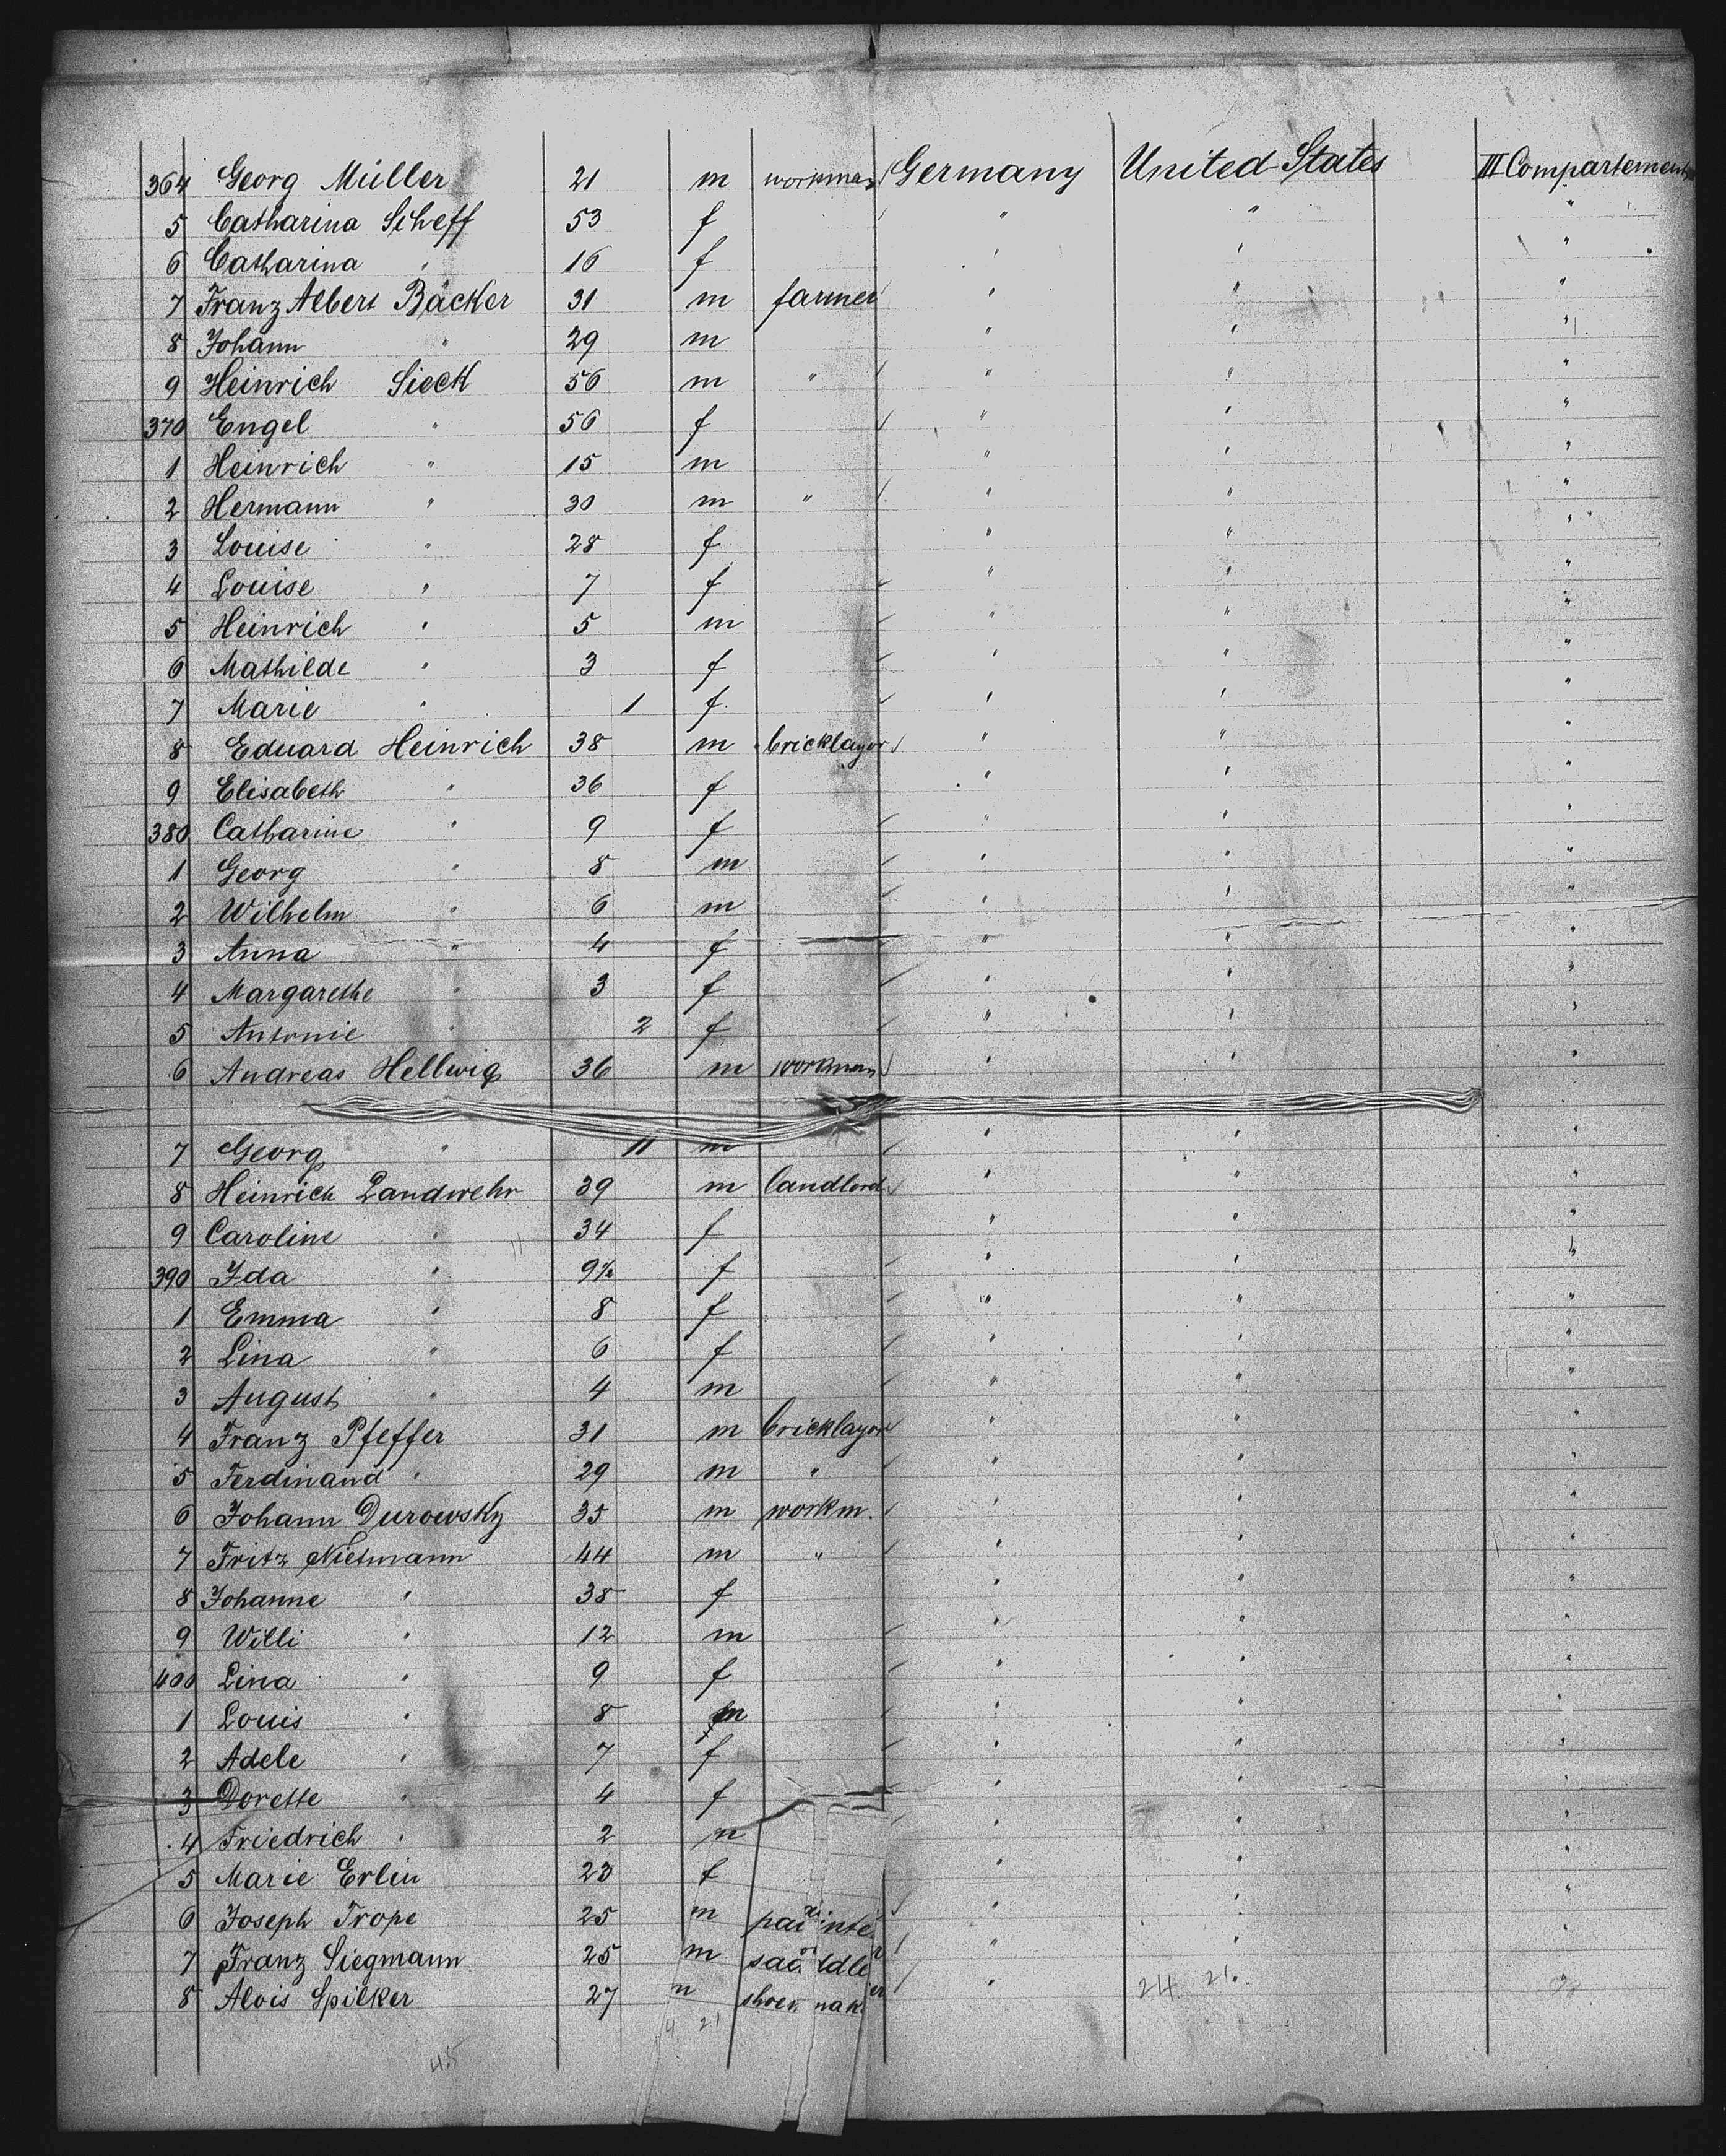 364 Georg Müller 21 m workman Germany United States III Compartement
5 Catharina Scheff 53 f " " "
6 Catharina " 16 f " " "
7 Franz Albert Bäcker 31 m farmer " " "
8 Johann " 29 m " " "
9 Heinrich Sieck 56 m " " " "
370 Engel " 56 f " " "
1 Heinrich " 15 m " " "
2 Hermann " 30 m " " " "
3 Louise " 28 f " " "
4 Louise " 7 f " " "
5 Heinrich " 5 m " " "
6 Mathilde " 3 f " " "
7 Marie " 1 f " " "
8 Eduard Heinrich 38 m bricklayer " " "
9 Elisabeth " 36 f " " "
380 Catharine " 9 f " " "
1 Georg " 8 m " " "
2 Wilhelm " 6 m " " "
3 Anna " 4 f " " "
4 Margarethe " 3 f " " "
5 Antonie " 2 f " " "
6 Andreas Hellwig 36 m workman " " "
7 Georg " 11 m " " "
8 Heinrich Landwehr 39 m landlord " " "
9 Caroline " 34 f " " "
390 Ida " 9½ f " " "
1 Emma " 8 f " " "
2 Lina " 6 f " " "
3 August " 4 m " " "
4 Franz Pfeffer 31 m bricklayer " " "
5 Ferdinand " 29 m " " " "
6 Johann Durowsky 35 m workm. " " "
7 Fritz Nietmann 44 m " " " "
8 Johanne " 38 f " " "
9 Willi " 12 m " " "
400 Lina " 9 f " " "
1 Louis " 8 m " " "
2 Adele " 7 f " " "
3 Dorette " 4 f " " "
4 Friedrich " 2 m " " "
5 Marie Erlin 23 f " " "
6 Joseph Trope 25 m painter " " "
7 Franz Siegmann 25 m saddler " " "
8 Alois Spilker 27 m shoemaker " 24 21
4 21
45